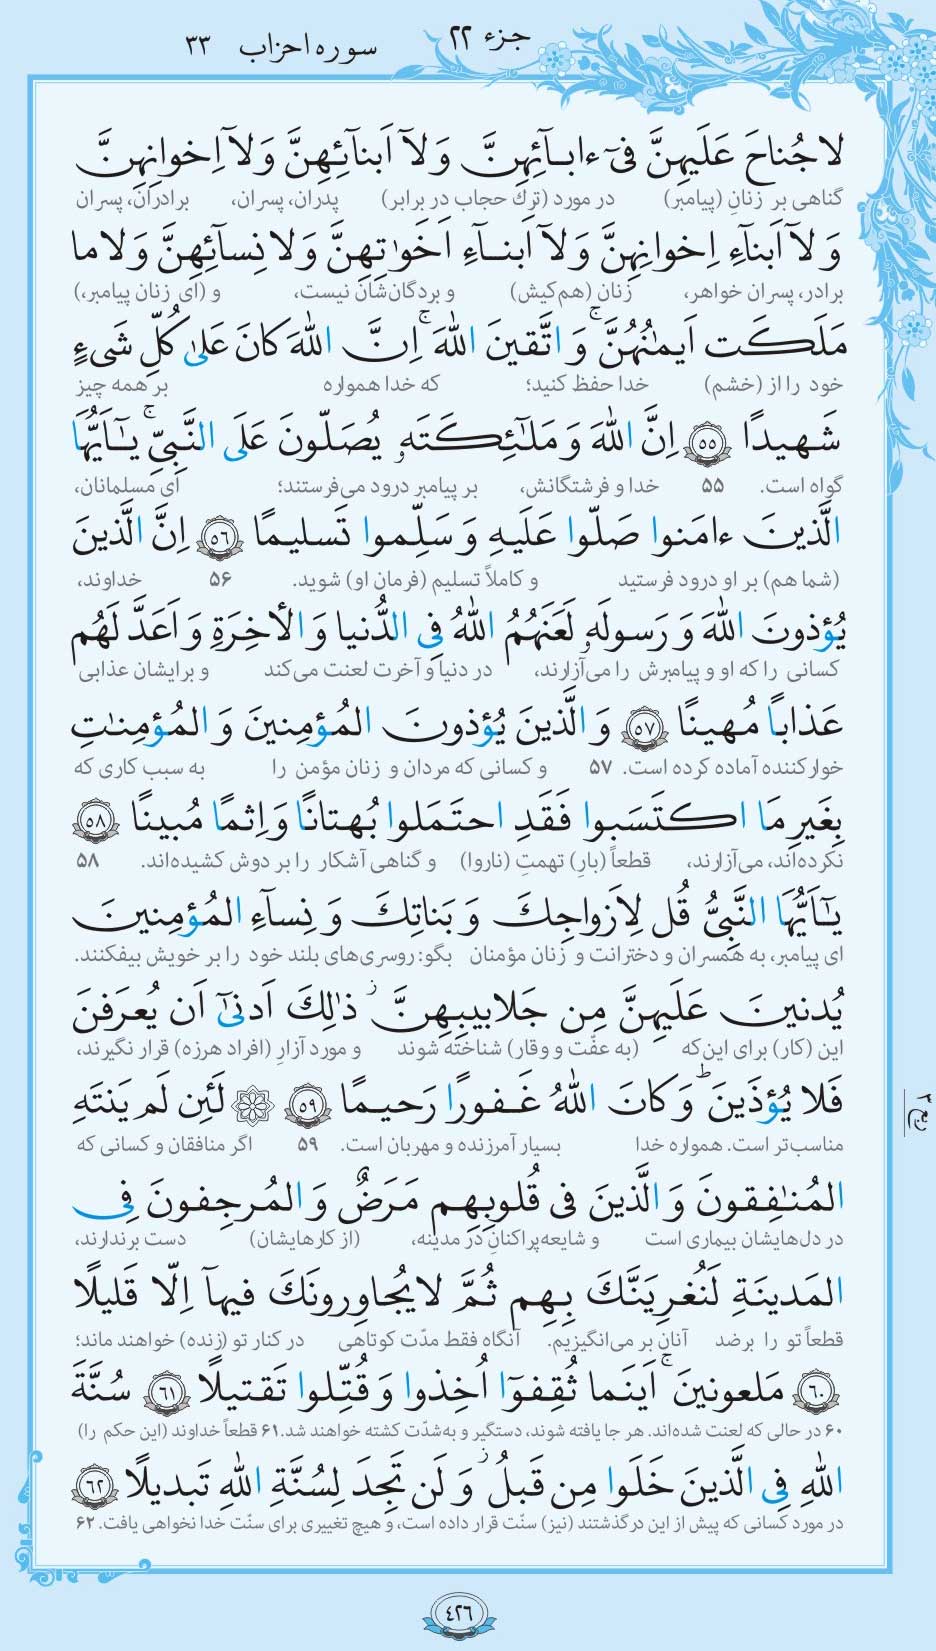 جزء ۲۲
سوره احزاب ۳۳
لاجُناحَ عَلَیهِنَّ فی ءابآئِهِنَّ وَ لاۤ اَبنآئِهِنَّ وَ لاۤ اِخوانِهِنَّ
گناهی بر زنانِ (پیامبر) در مورد (ترك حجاب در برابر) پدران، پسران، برادران، پسران
وَ لاۤ اَبنآءِ اِخوانِهِنَّ وَ لاۤ اَبنآءِ اَخَواتِهِنَّ وَ لا نِسآئِهِنَّ وَ لا ما
برادر، پسران خواهر، زنان (هم‌کیش) و بردگان‌شان نیست، و (ای زنان پیامبر،)
مَلَکَت اَیمانُهُنَّۚ وَ اتَّقینَ اللهَۚ اِنَّ اللهَ کانَ عَلیٰ کُلِّ شَیءٍ
خود را از (خشم) خدا حفظ کنید؛ که خدا همواره بر همه چیز
شَهیدًا ۵۵ اِنَّ اللهَ وَ مَلآئِکَتَهٗ یُصَلّونَ عَلَی النَّبِیِّۚ یـٰۤاَیُّهَا
گواه است. ۵۵ خدا و فرشتگانش، بر پیامبر درود می‌فرستند؛ ای مسلمانان،
الَّذینَ ءامَنوا صَلّوا عَلَیهِ وَ سَلِّموا تَسلیمًا ۵۶ اِنَّ الَّذینَ
(شما هم) بر او درود فرستید و کاملاً تسلیم (فرمان او) شوید. ۵۶ خداوند،
یُؤذونَ اللهَ وَ رَسولَهٗ لَعَنَهُمُ اللهُ فِی الدُّنیا وَ الأخِرَةِ وَ اَعَدَّ لَهُم
کسانی را که او و پیامبرش را می‌آزارند، در دنیا و آخرت لعنت می‌کند و برایشان عذابی
عَذابًا مُهینًا ۵۷ وَ الَّذینَ یُؤذونَ المُؤمِنینَ وَ المُؤمِنٰتِ
خوارکننده آماده کرده است. ۵۷ و کسانی که مردان و زنان مؤمن را به سبب کاری که
بِغَیرِ مَا اکتَسَبوا فَقَدِ احتَمَلوا بُهتانًا وَ اِثمًا مُبینًا ۵۸
نکرده‌اند، می‌آزارند، قطعاً (بارِ) تهمتِ (ناروا) و گناهی آشکار را بر دوش کشیده‌اند. ۵۸
یـٰۤاَیُّهَا النَّبِیُّ قُل لِاَزواجِكَ وَ بَناتِكَ وَ نِسآءِ المُؤمِنینَ
ای پیامبر، به همسران و دخترانت و زنان مؤمنان بگو: روسری‌های بلند خود را بر خویش بیفکنند.
یُدنینَ عَلَیهِنَّ مِن جَلابیبِهِنَّۚ ذٰلِكَ اَدنیٰۤ اَن یُعرَفنَ
این (کار) برای این‌که (به عفّت و وقار) شناخته شوند و مورد آزارِ (افراد هرزه) قرار نگیرند،
فَلا یُؤذَینَؕ وَ کانَ اللهُ غَفورًا رَحیمًا ۵۹ لَئِن لَم یَنتَهِ
مناسب‌تر است. همواره خدا بسیار آمرزنده و مهربان است. ۵۹ اگر منافقان و کسانی که
المُنٰفِقونَ وَ الَّذینَ فی قُلوبِهِم مَرَضٌ وَ المُرجِفونَ فِی
در دل‌هایشان بیماری است و شایعه‌پراکنانِ در مدینه، (از کارهایشان) دست برندارند،
المَدینَةِ لَنُغرِیَنَّكَ بِهِم ثُمَّ لا یُجاوِرونَكَ فیهاۤ اِلّا قَلیلًا
قطعاً تو را برضد آنان بر می‌انگیزیم. آنگاه فقط مدّت کوتاهی در کنار تو (زنده) خواهند ماند؛
۶۰ مَلعونینَۚ اَینَما ثُقِفوۤا اُخِذوا وَ قُتِّلوا تَقتیلًا ۶۱ سُنَّةَ
۶۰ در حالی که لعنت شده‌اند. هر جا یافته شوند، دستگیر و به‌شدّت کشته خواهند شد. ۶۱ قطعاً خداوند (این حکم را)
اللهِ فِی الَّذینَ خَلَوا مِن قَبلُۚ وَ لَن تَجِدَ لِسُنَّةِ اللهِ تَبدیلًا ۶۲
در مورد کسانی که پیش از این درگذشتند (نیز) سنّت قرار داده است، و هیچ تغییری برای سنّت خدا نخواهی یافت. ۶۲
۴۲۶